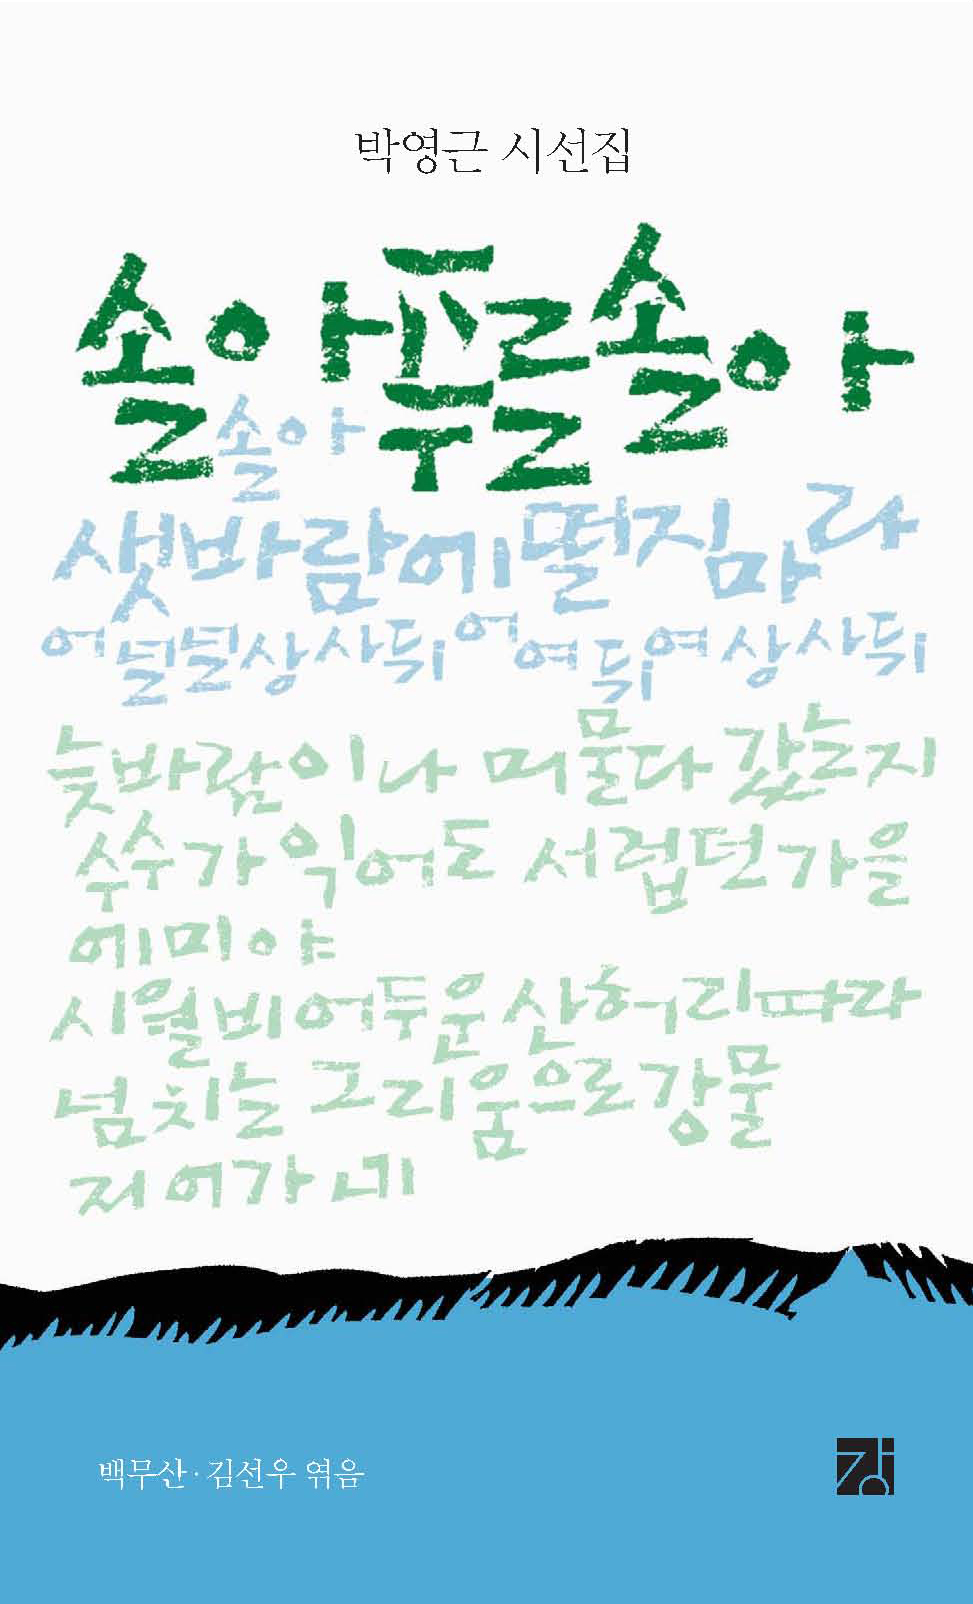 박영근 시선집
솔아 푸른 솔아
솔아
샛바람에 떨지 마라
어널널 상사뒤 어여뒤여 상사뒤
늦바람이나 머물다 갔는지
수수가 익어도 서럽던 가을
에미야
시월비 어두운 산허리 따라
넘치는 그리움으로 강물
저어가네
백무산·김선우 엮음
강